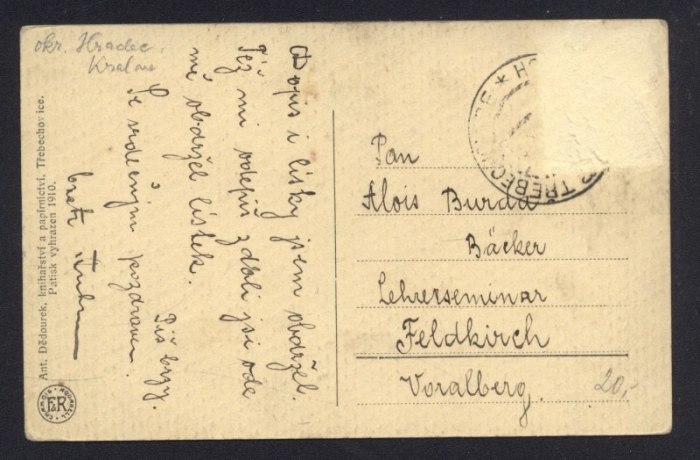 okr. Hradec
Kralove
Dopis i lísky jsem obdržel.
Též mi odepiš zdali jsi ode
mě obdržel lístek.
Piš brzy.
Se srdečným pozdravem
bratr
Ant. Dědourek, knihařství a papírnictví, Třebechovice.
Patisk vyhrazen 1910.
Pan
Alois Burda
Bäcker
Lehrerseminar
Feldkirch
Voralberg.
20,-